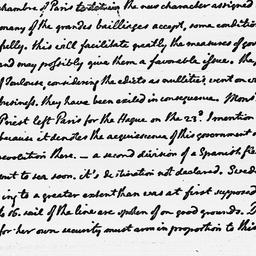 chambre of Paris to the new character assigned
many of the grandes bailliages accept, some condition
fully. this will facilitate greatly the measures of gov
and may possibly give them a favorable issue. the
of Toulouse, considering the edicts as nullities, went on w
business. they have been exiled in consequence. Mons
Priest left Paris for the Hague on the 23d. I mention
because it denotes the acquiescence of this government
revolution there. — a second division of a Spanish fle
went to sea soon. it's destination not declared. Swed
ing to a greater extent than was at first supposed
to 16. sail of the line are spoken of on good grounds. D
for her own security must arm in proportion to this